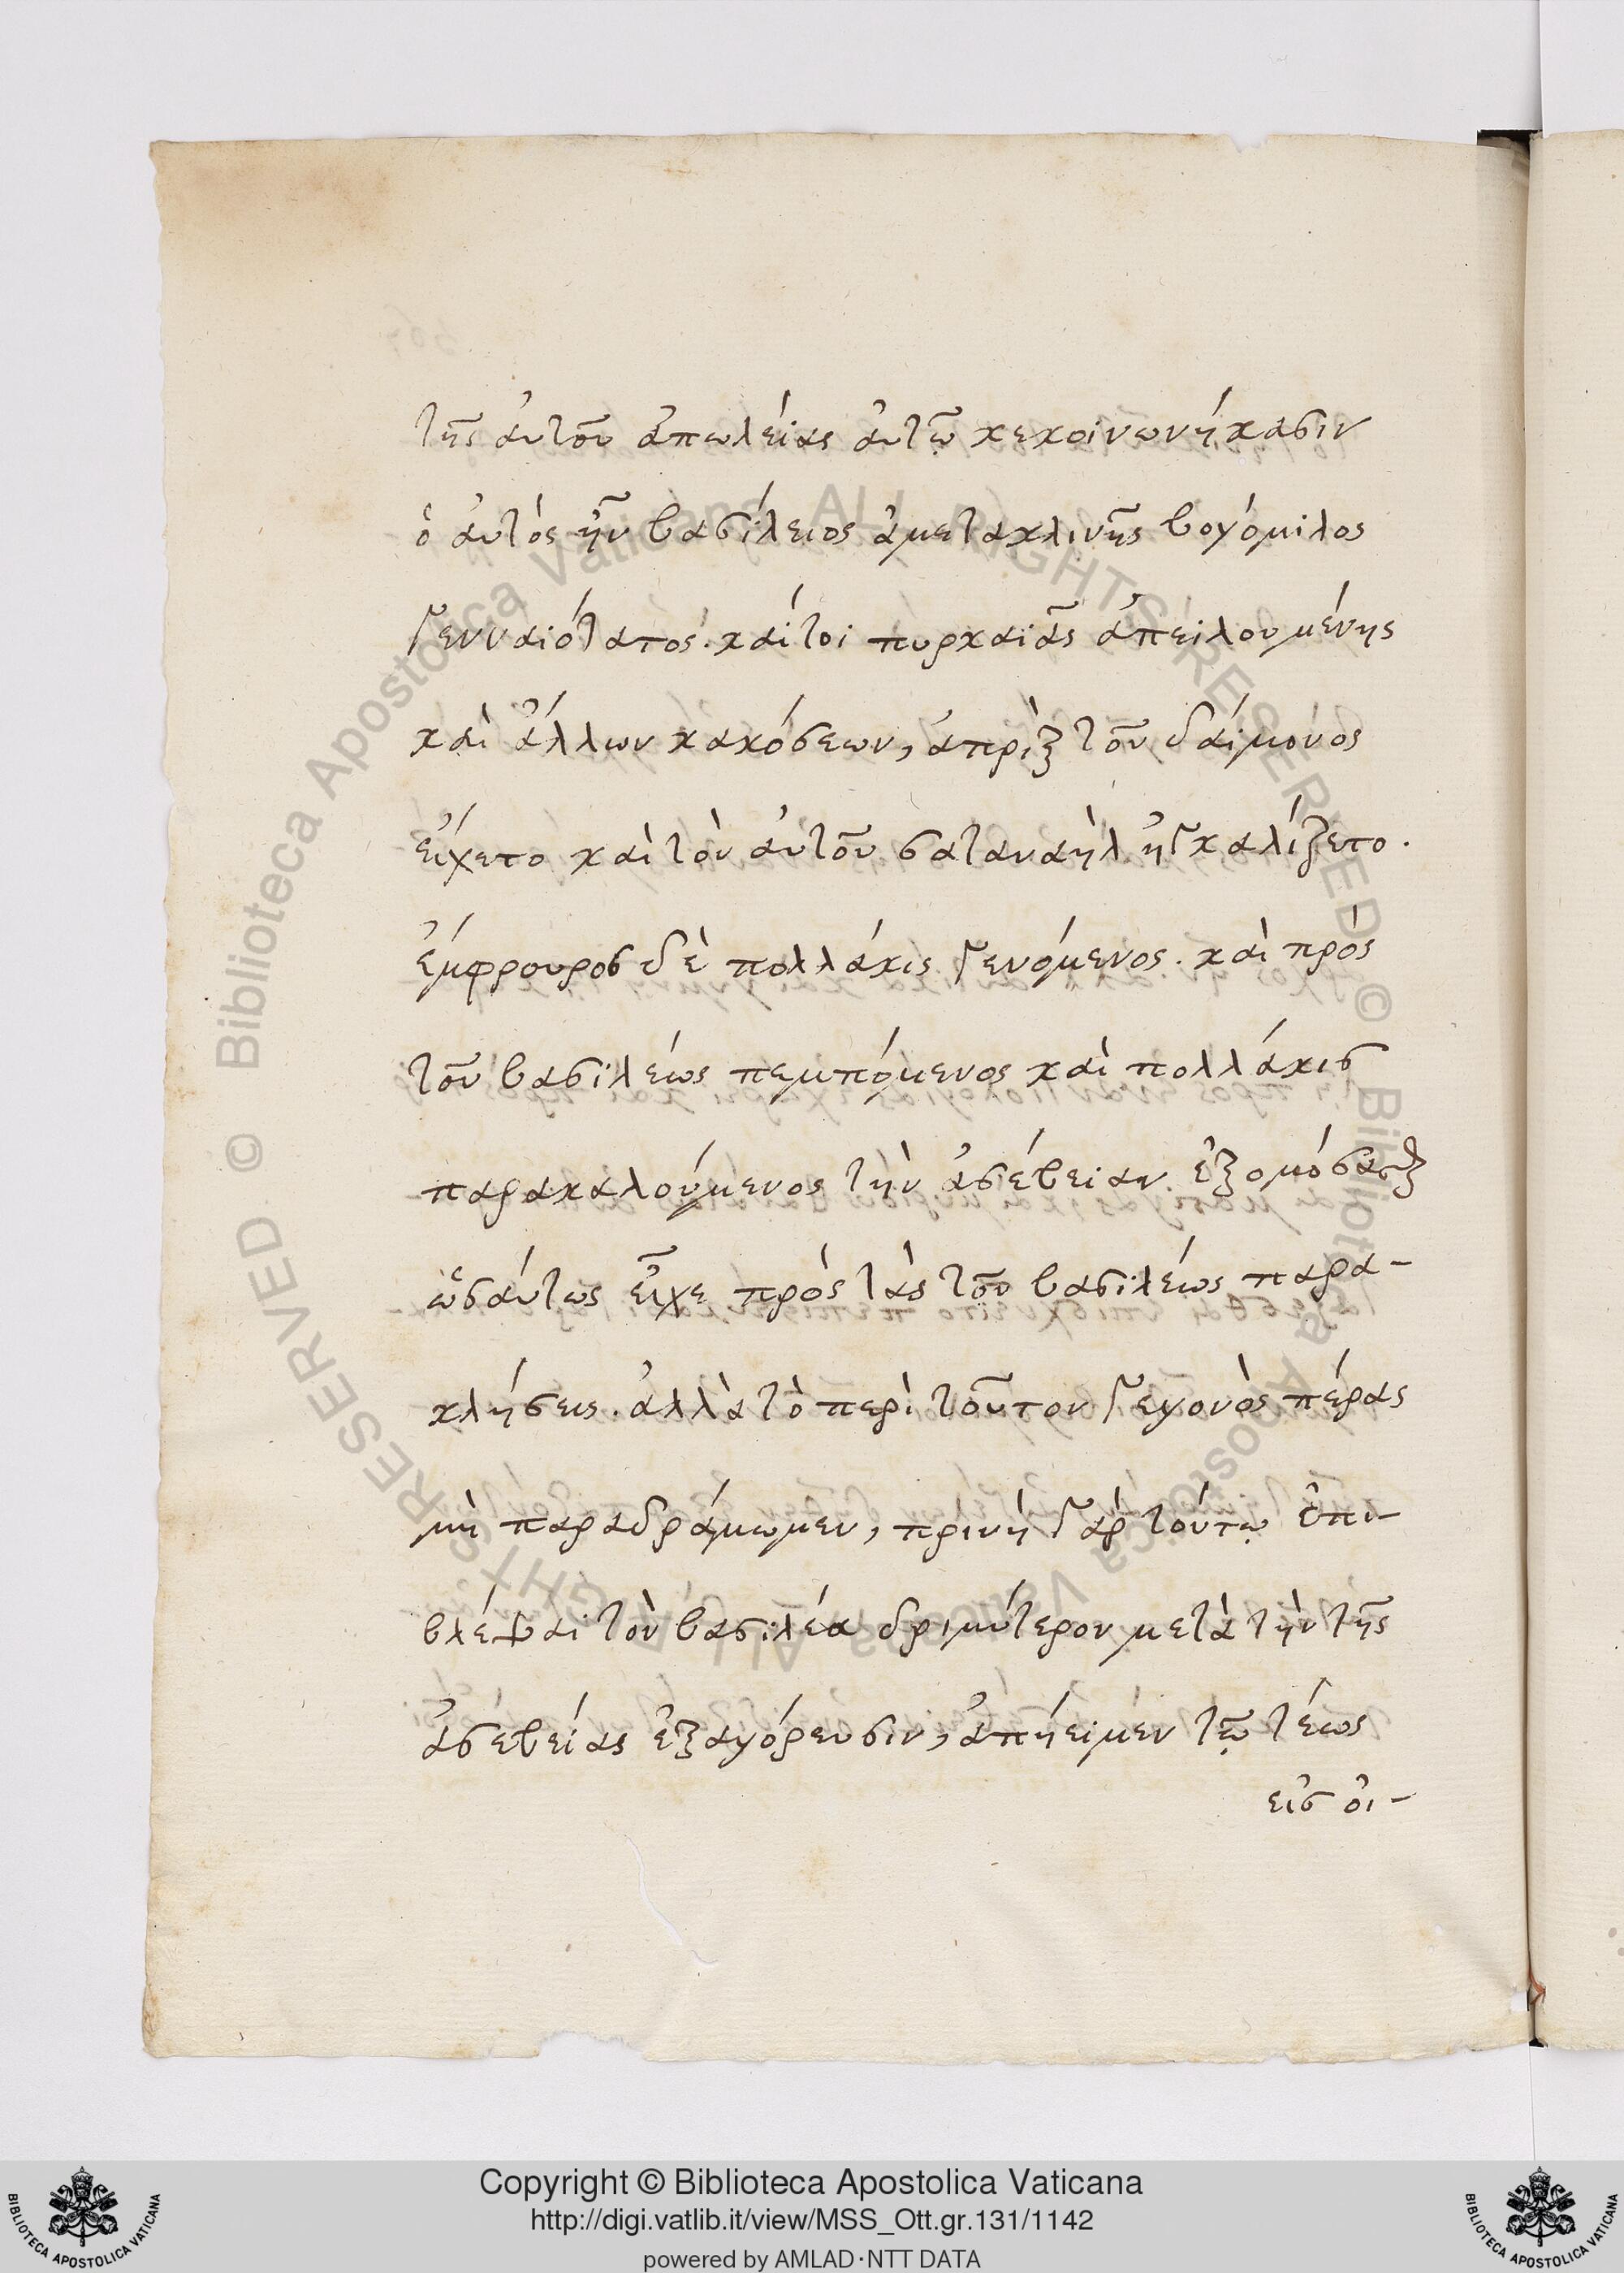 τῆς αὐτοῦ ἀπωλείας αὐτῷ κεκοινωνήκασιν
ὁ αὐτὸς ἦν βασίλειος ἀμετακλινῆς βογόμιλος
γενναιότατος. καίτοι πυρκαϊᾶς ἀπειλουμένης
καὶ ἄλλων κακόσεων, ἀπρὶξ τοῦ δαίμονος
εἴχετο καὶ τὸν αὐτοῦ σαταναὴλ ἠγκαλίζετο.
ἔμφρουρος δὲ πολλάκις γενόμενος. καὶ πρὸς
τοῦ βασιλέως πεμπόμενος καὶ πολλάκις
παρακαλούμενος τὴν ἀσέβειαν ἐξομόσασθαι
ὡσαύτως εἶχε πρὸς τὰς τοῦ βασιλέως παρα-
κλήσεις. ἀλλὰ τὸ περὶ τοῦτον γεγονὸς πέρας
μὴ παραδράμωμεν, πρινὴ γὰρ τούτῳ ἐπι-
βλέψαι τὸν βασιλέα δριμύτερον μετὰ τὴν τῆς
ἀσεβείας ἐξαγόρευσιν, ἀπήειμεν τῷ τέως
εἰς οἰ-
© Biblioteca Apostolica Vaticana ALL RIGHTS RESERVED © Biblioteca Apostolica Vaticana ALL RIGHTS RESERVED
Copyright © Biblioteca Apostolica Vaticana
http://digi.vatlib.it/view/MSS_Ott.gr.131/1142
powered by AMLAD·NTT DATA
BIBLIOTECA APOSTOLICA VATICANA
BIBLIOTECA APOSTOLICA VATICANA